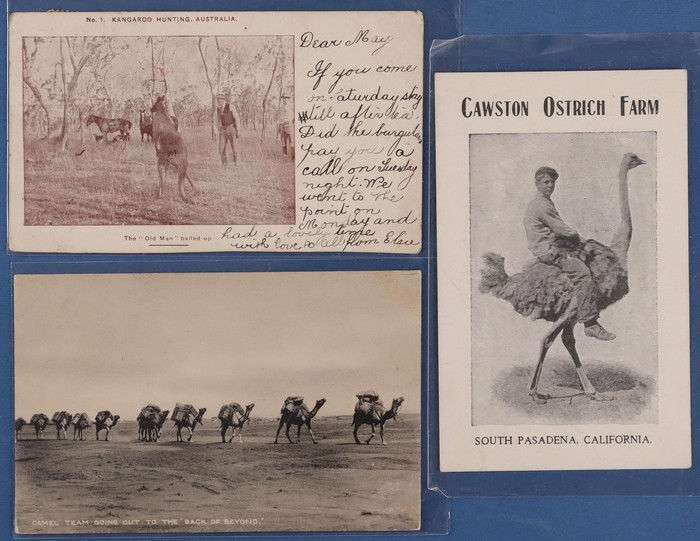 No. 1. KANGAROO HUNTING, AUSTRALIA.
The "Old Man" bailed up
Dear May
If you come
on Saturday stay
till after tea.
Did the burgulars
pay you a
call on Tuesday
night. We
went to the
point on
Monday and
had a lovely time
with love to all from Elsie
CAMEL TEAM GOING OUT TO THE "BACK OF BEYOND."
CAWSTON OSTRICH FARM
SOUTH PASADENA, CALIFORNIA.